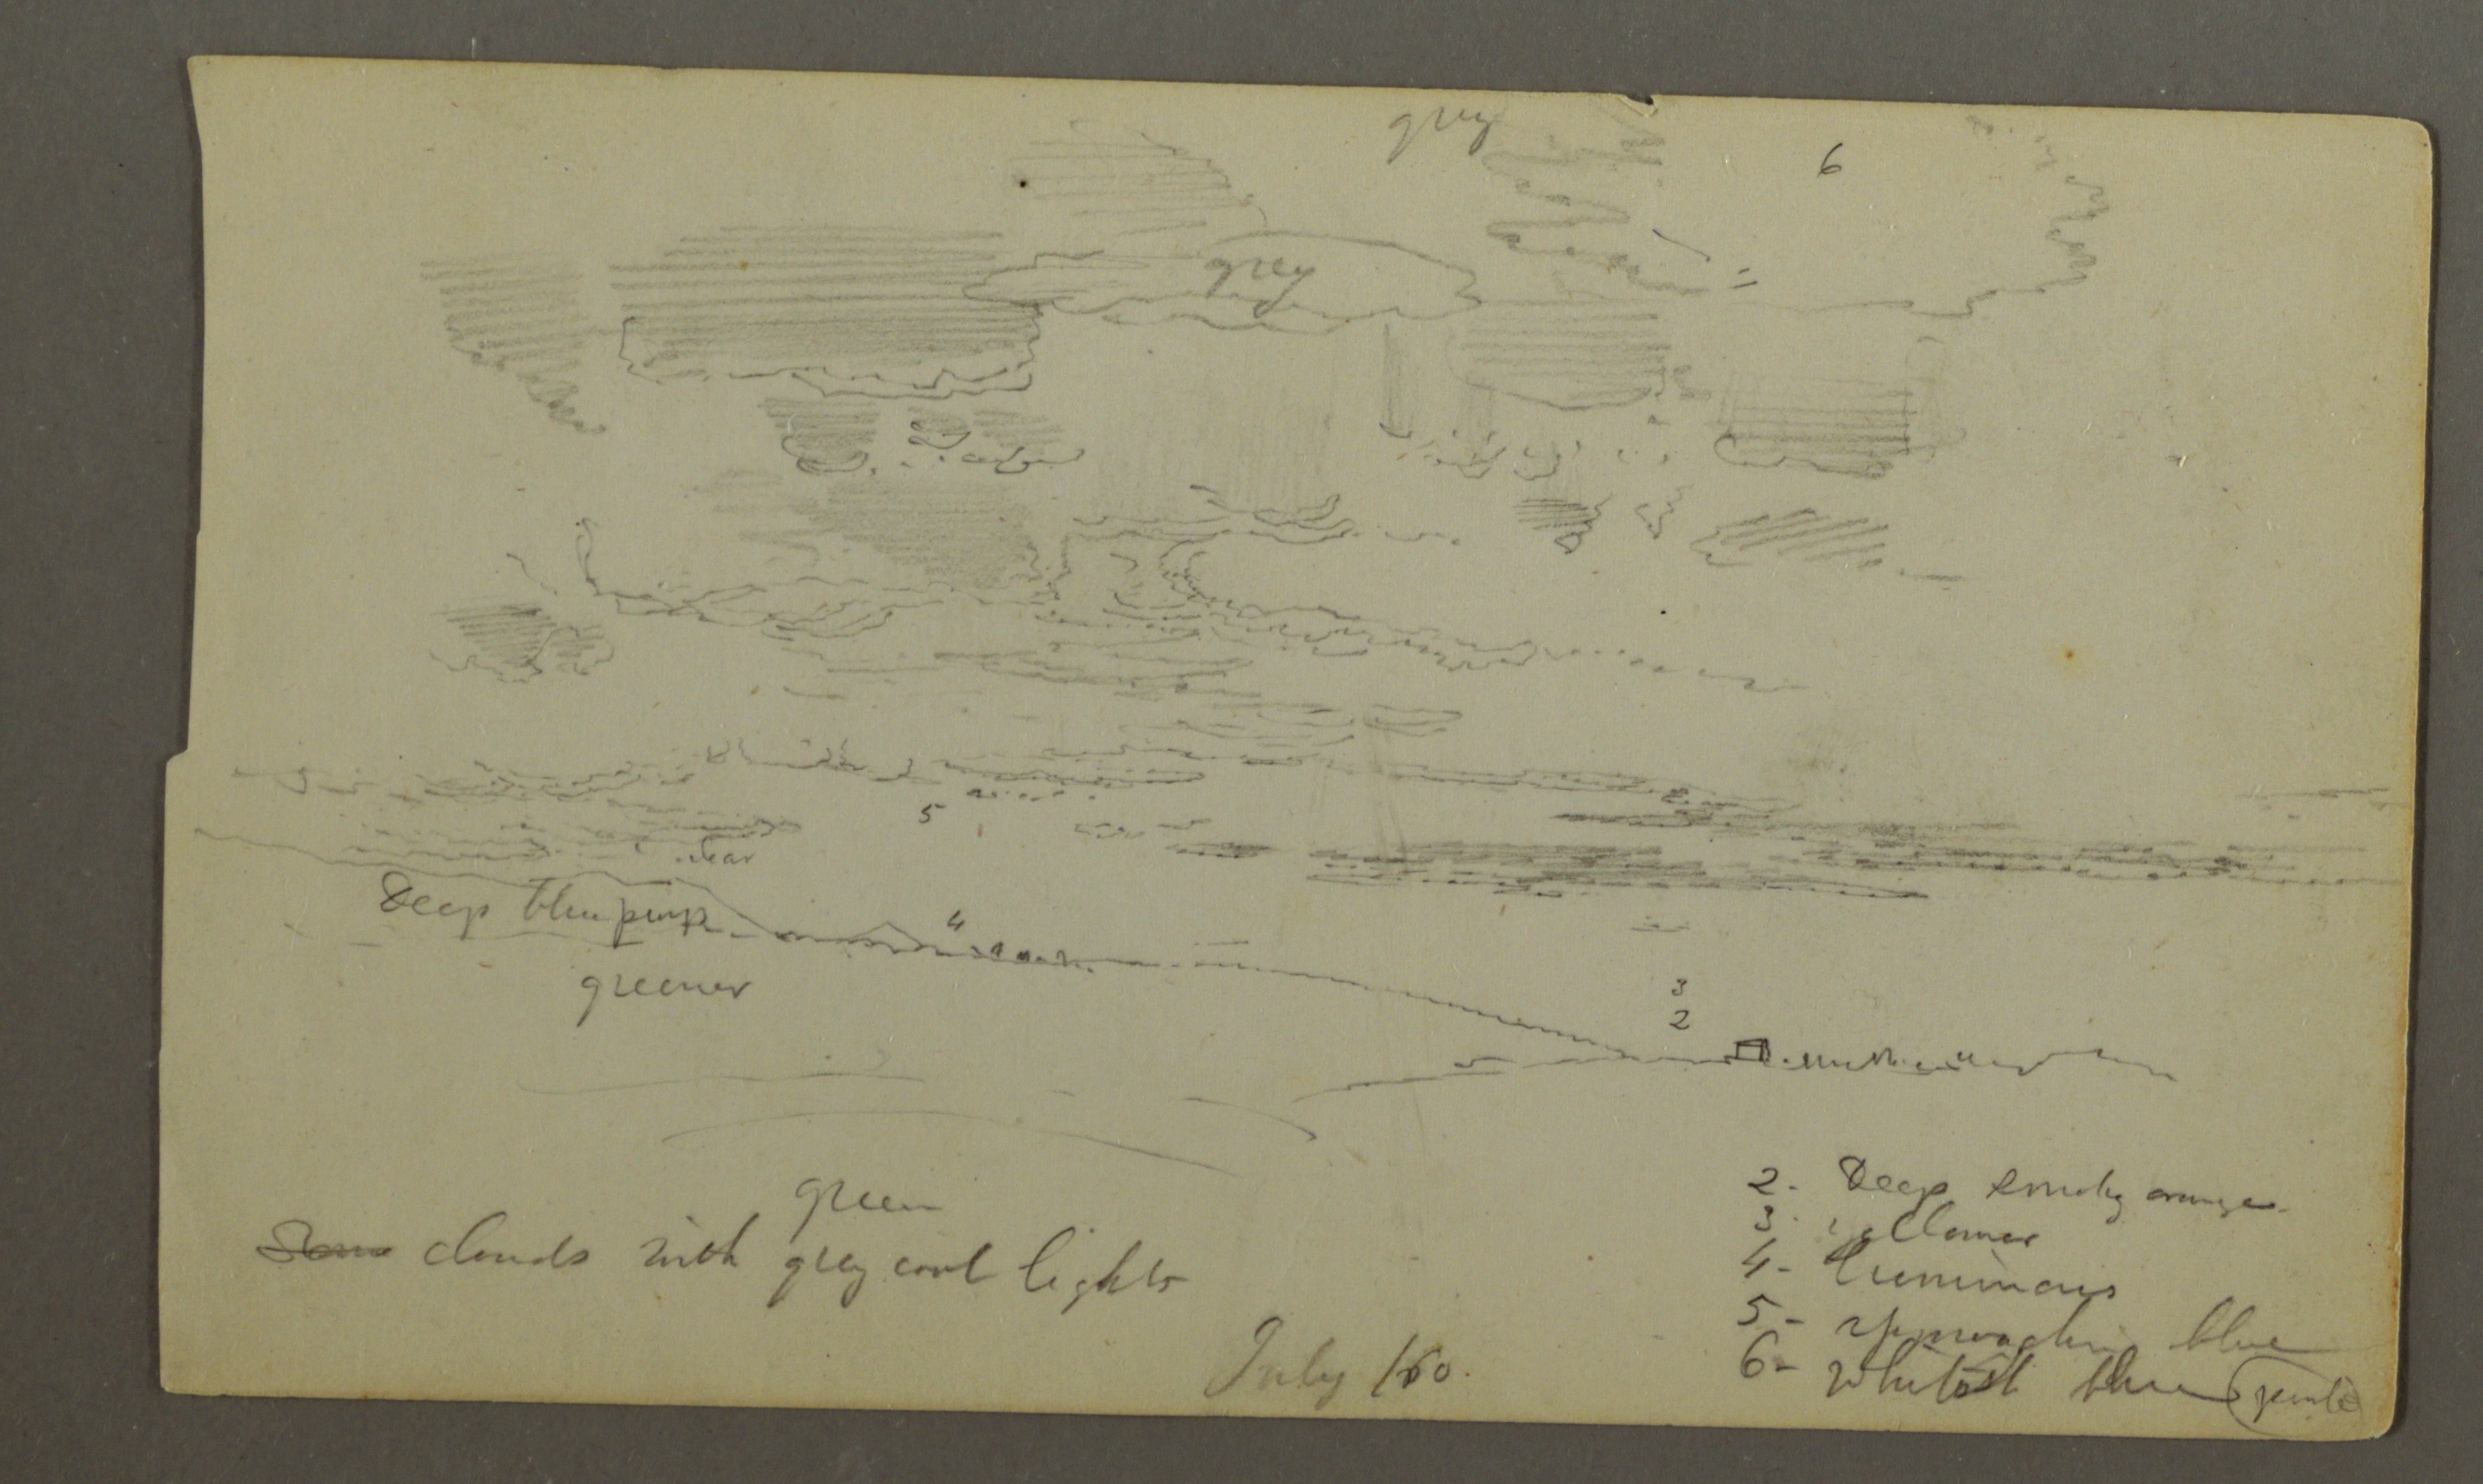 grey
6
grey
5
clear
Deep blue purp
4
greener
3
2
green
Some clouds with grey cool lights
2- Deep smoky orange
3- yellower
4- luminous
5- approaching blue
6- whitest blue (pinkis
July /60.